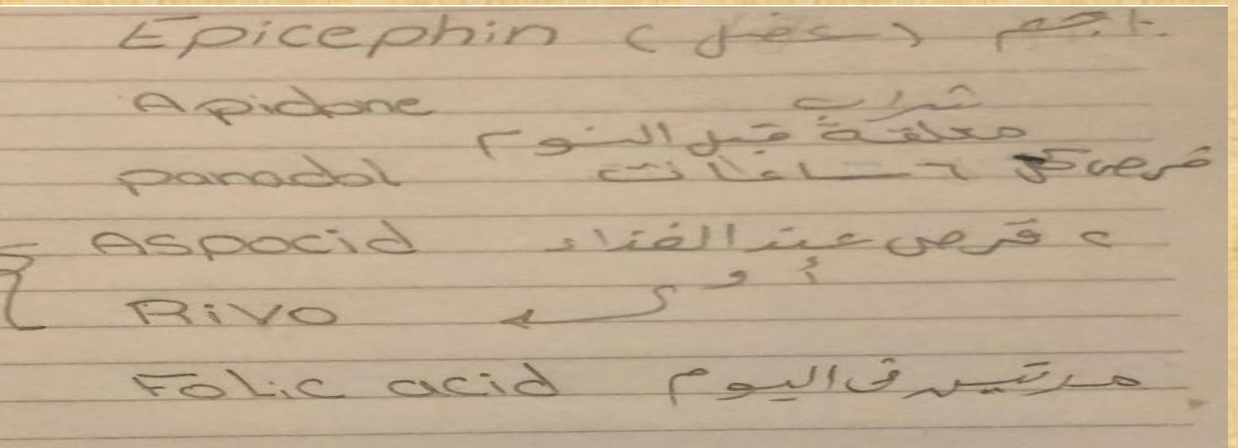 Epicephin (عضل) ١ جم
Apidone شراب
معلقة قبل النوم
panadol قرص كل ٦ ساعات
Aspocid ٢ قرص عند الغذاء
أو
RiVO
Folic acid مرتين في اليوم